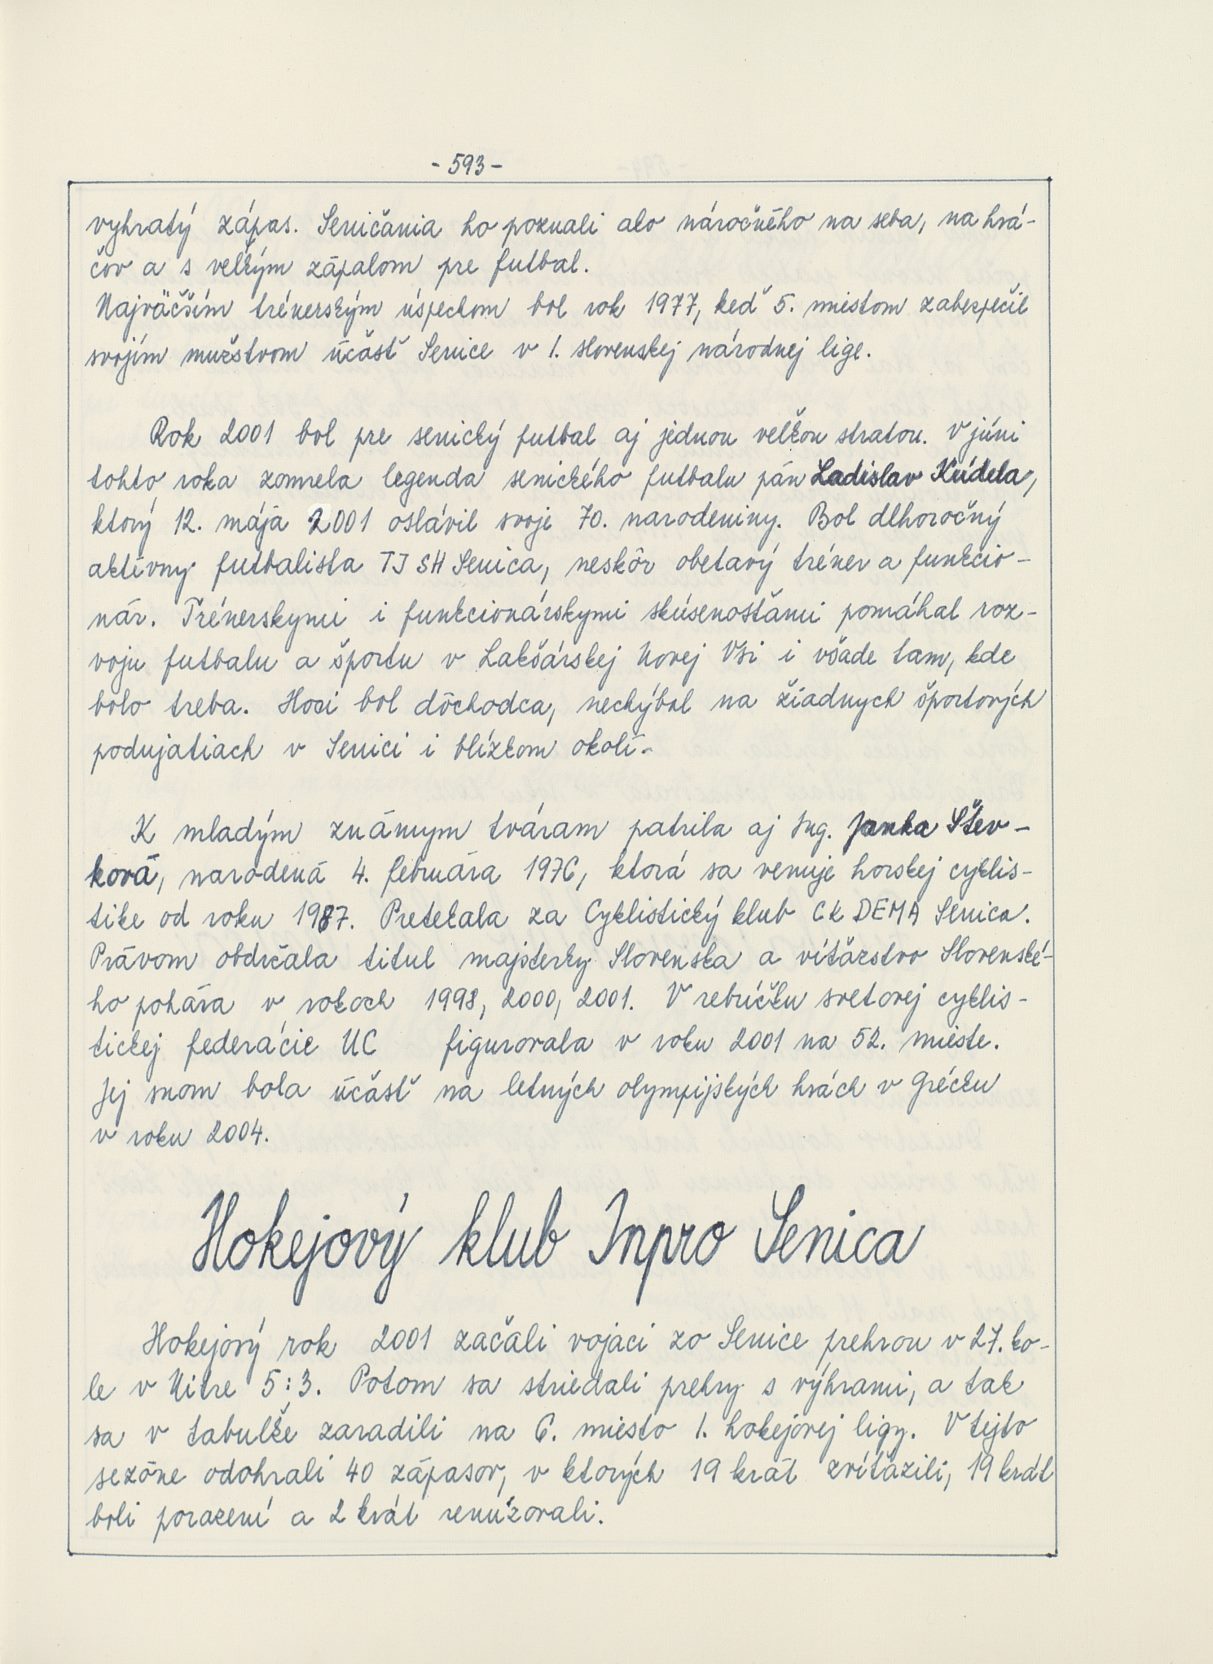 - 593 -
vyhratý zápas. Seničania ho poznali ako náročného na seba, na hrá-
čov a s veľkým zápalom pre futbal.
Najväčším trénerským úspechom bol rok 1977, keď 5. miestom zabezpečil
svojím mužstvom účasť Senice v 1. slovenskej národnej lige.
Rok 2001 bol pre senický futbal aj jednou veľkou stratou. V júni
tohto roka zomrela legenda senického futbalu pán Ladislav Kúdela,
ktorý 12. mája 2001 oslávil svoje 70. narodeniny. Bol dlhoročný
aktívny futbalista TJ SH Senica, neskôr obetavý tréner a funkcio-
nár. Trénerskymi i funkcionárskymi skúsenosťami pomáhal roz-
voju futbalu a športu v Lakšárskej Novej Vsi i všade tam, kde
bolo treba. Hoci bol dôchodca, nechýbal na žiadnych športových
podujatiach v Senici i blízkom okolí.
K mladým známym tváram patrila aj Ing. Janka Štev-
ková, narodená 4. februára 1976, ktorá sa venuje horskej cyklis-
tike od roku 1987. Pretekala za Cyklistický klub CK DEMA Senica.
Právom obdržala titul majsterky Slovenska a víťazstvo Slovenské-
ho pohára v rokoch 1998, 2000, 2001. V rebríčku svetovej cyklis-
tickej federácie UC figurovala v roku 2001 na 52. mieste.
Jej snom bola účasť na letných olympijských hrách v Grécku
v roku 2004.
Hokejový klub Inpro Senica
Hokejový rok 2001 začali vojaci zo Senice prehrou v 27. ko-
le v Nitre 5:3. Potom sa striedali prehry s výhrami, a tak
sa v tabuľke zaradili na 6. miesto 1. hokejovej ligy. V tejto
sezóne odohrali 40 zápasov, v ktorých 19 krát zvíťazili, 19 krát
boli porazení a 2 krát remízovali.